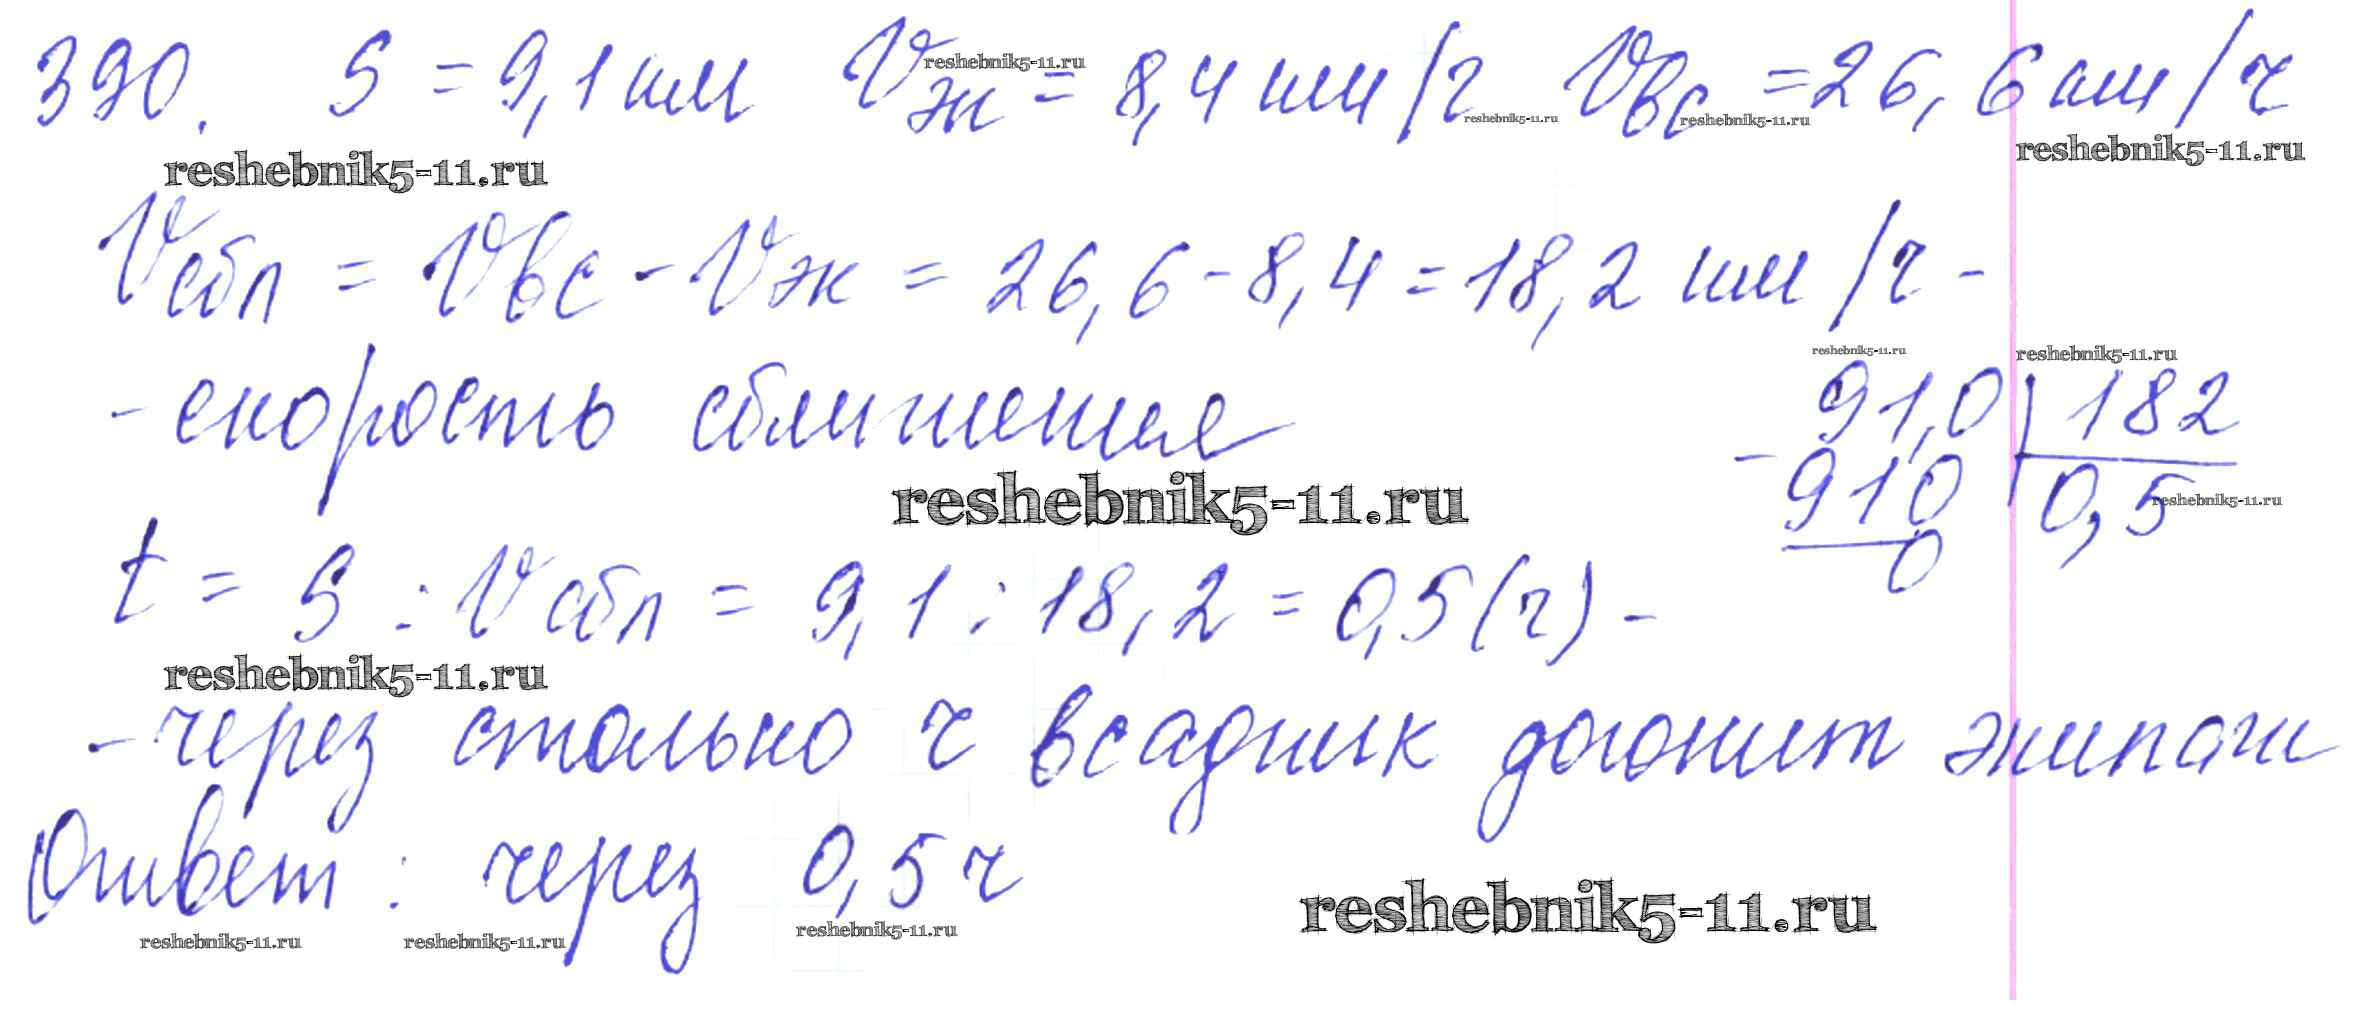 390. S = 9,1 км Vэк = 8,4 км/ч Vвс = 26,6 км/ч
reshebnik5-11.ru reshebnik5-11.ru reshebnik5-11.ru
reshebnik5-11.ru reshebnik5-11.ru
Vсбл = Vвс - Vэк = 26,6 - 8,4 = 18,2 км/ч -
reshebnik5-11.ru reshebnik5-11.ru
- скорость сближения
91,0 | 182
- 910 0,5
0
reshebnik5-11.ru reshebnik5-11.ru
t = S : Vсбл = 9,1 : 18,2 = 0,5 (ч) -
reshebnik5-11.ru
- через столько ч всадник догонит экипаж
Ответ: через 0,5 ч
reshebnik5-11.ru
reshebnik5-11.ru reshebnik5-11.ru reshebnik5-11.ru